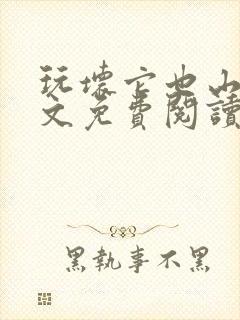 玩壞它也山
文免費閱讀
黑執事不黑